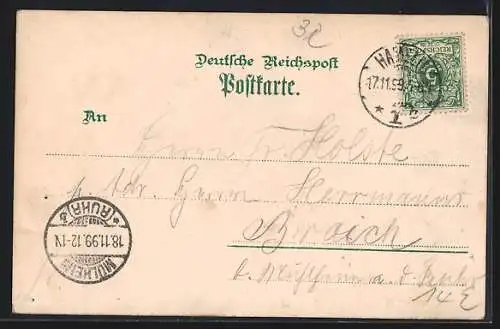 32
Deutsche Reichspost
Postkarte.
HA
17.11.99.
* 1
REICHSPOST
5
An
Herrn Fr. Holste
p. Adr. Herrn Herrmann
Broich
b. Mülheim a. d. Ruhr
14 E
MÜLHEIM
18.11.99. 12-1N
* (RUHR)